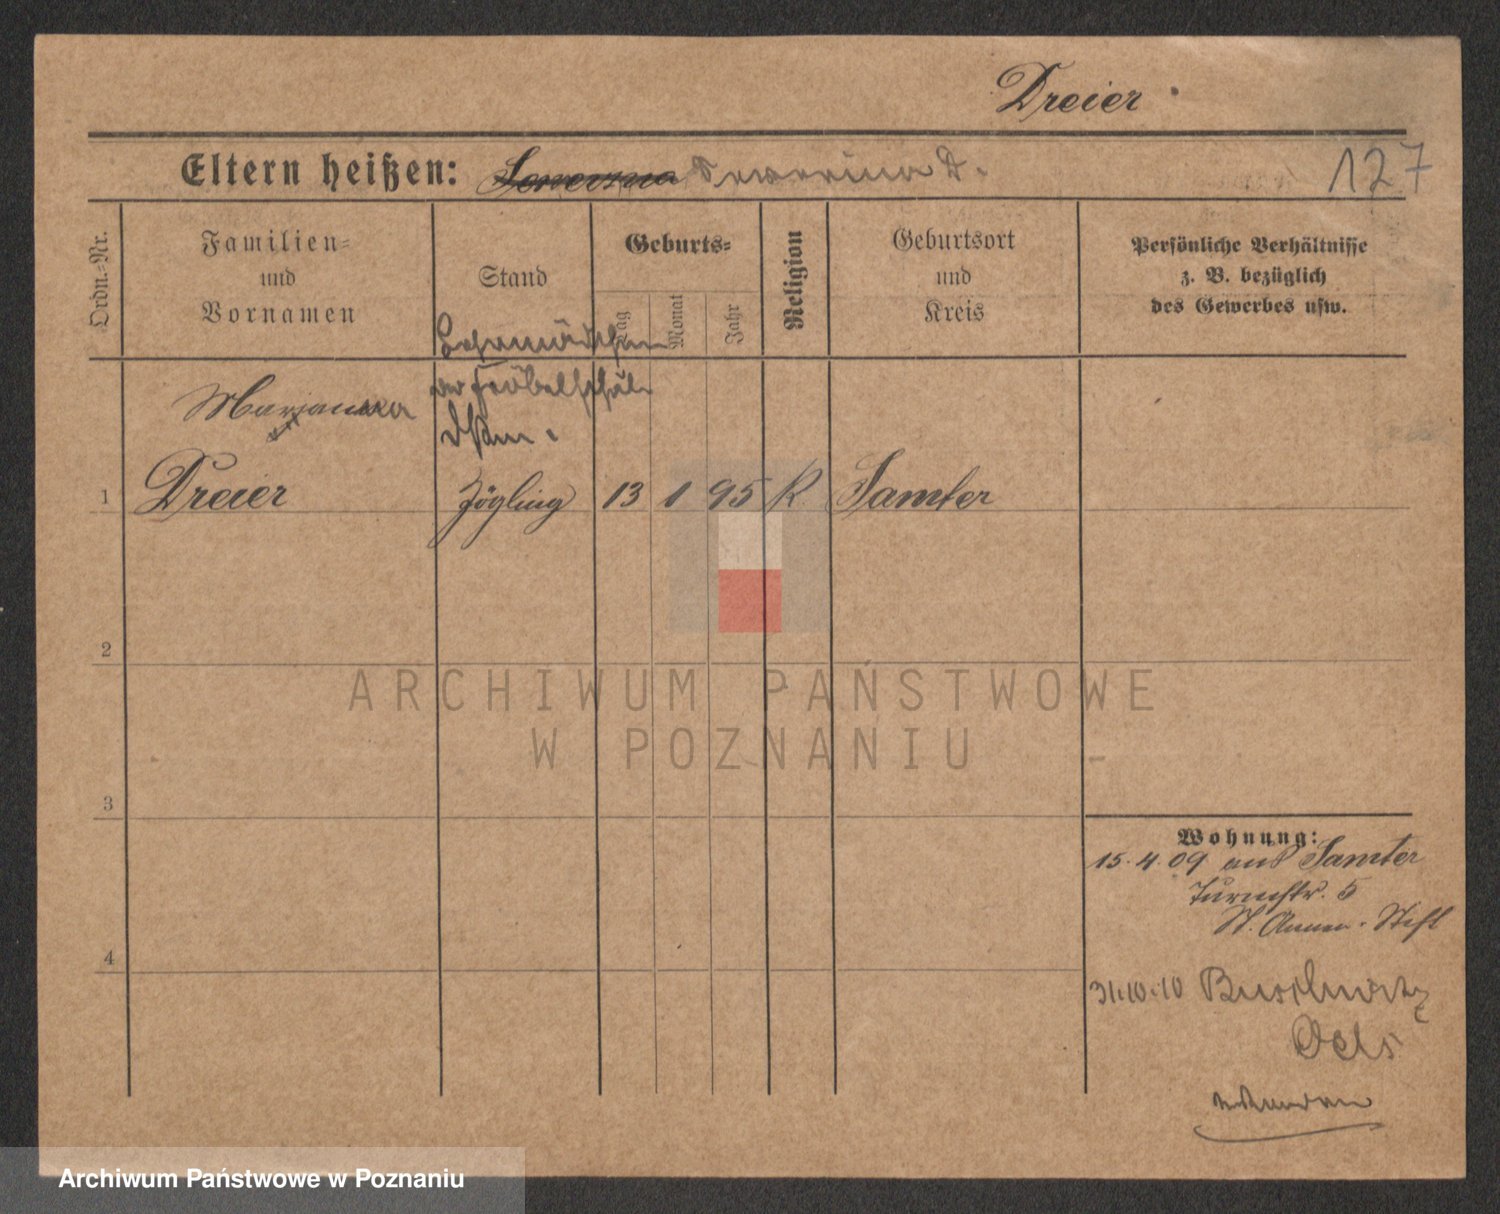 Dreier
Eltern heißen: D.
127
Ordn.-Nr.
Familien-
und
Vornamen
Stand
Geburts-
Tag
Monat
Jahr
Religion
Geburtsort
und
Kreis
Persönliche Verhältnisse
z. B. bezüglich
des Gewerbes usw.
Marjanna
1 Dreier Zögling 13 1 95 K Samter
2
ARCHIWUM PAŃSTWOWE
W POZNANIU
3
Wohnung:
15.4.09 aus Samter
Turmstr. 5
St. Annen-Stift
4
31.10.10
Oels
Archiwum Państwowe w Poznaniu